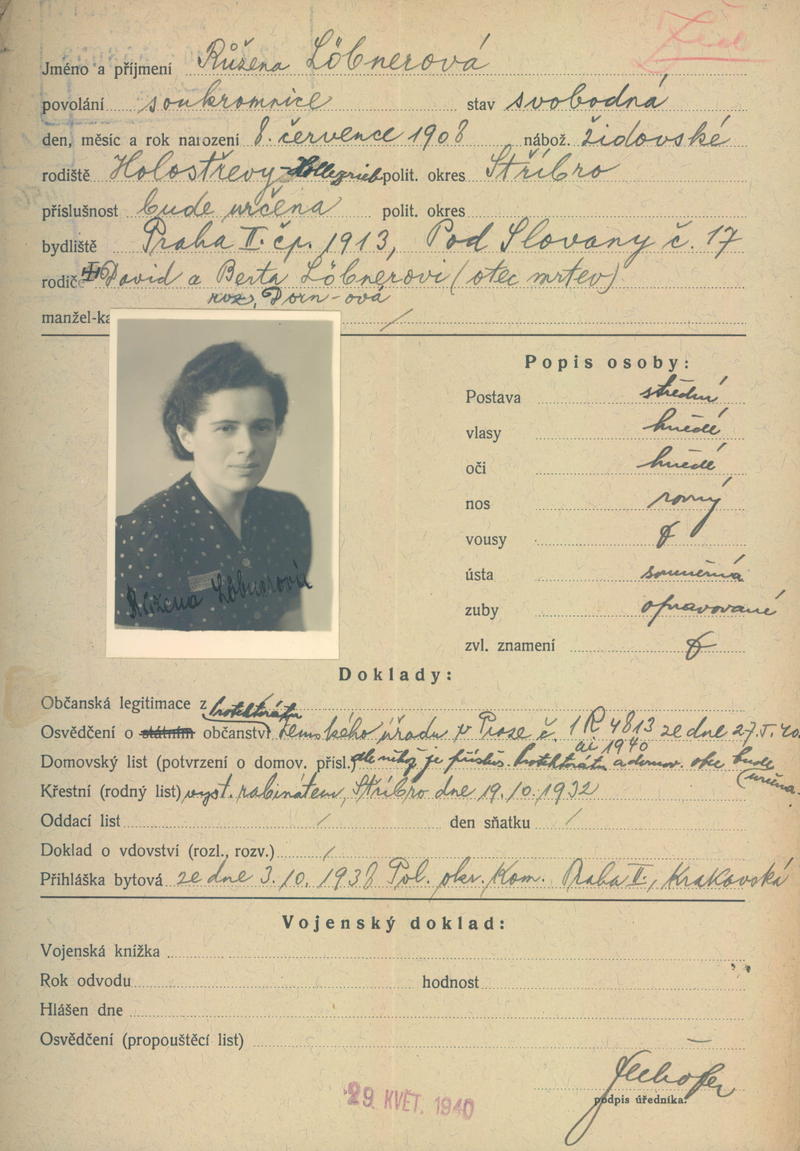 Žid
Jméno a příjmení Růžena Löbnerová
povolání soukromnice stav svobodná
den, měsíc a rok narození 8. července 1908 nábož. židovské
rodiště Holostřevy polit. okres Stříbro
příslušnost bude určena polit. okres
bydliště Praha II. čp. 1913, Pod Slovany č. 17
rodiče David a Berta Löbnerovi (otec mrtev)
roz. Dorn-ová
manžel-ka /
Růžena Löbnerová
Popis osoby:
Postava střední
vlasy hnědé
oči hnědé
nos rovný
vousy
ústa souměrná
zuby opravované
zvl. znamení
Doklady:
Občanská legitimace z
protektorátu
Osvědčení o státním občanství zemského úřadu v Praze č. 1R 4813 ze dne 27.V.40.
ai 1940
Domovský list (potvrzení o domov. přísl.) dle něhož je přísluš. protektorátu a domov. obec bude
určena.
Křestní (rodný list) vyst. rabinátem, Stříbro dne 19.10.1932
Oddací list / den sňatku /
Doklad o vdovství (rozl., rozv.) /
Přihláška bytová ze dne 3.10.1938 Pol. okr. Kom. Praha II., Krakovská
Vojenský doklad:
Vojenská knížka
Rok odvodu hodnost
Hlášen dne
Osvědčení (propouštěcí list)
29. KVĚT. 1940
podpis úředníka: